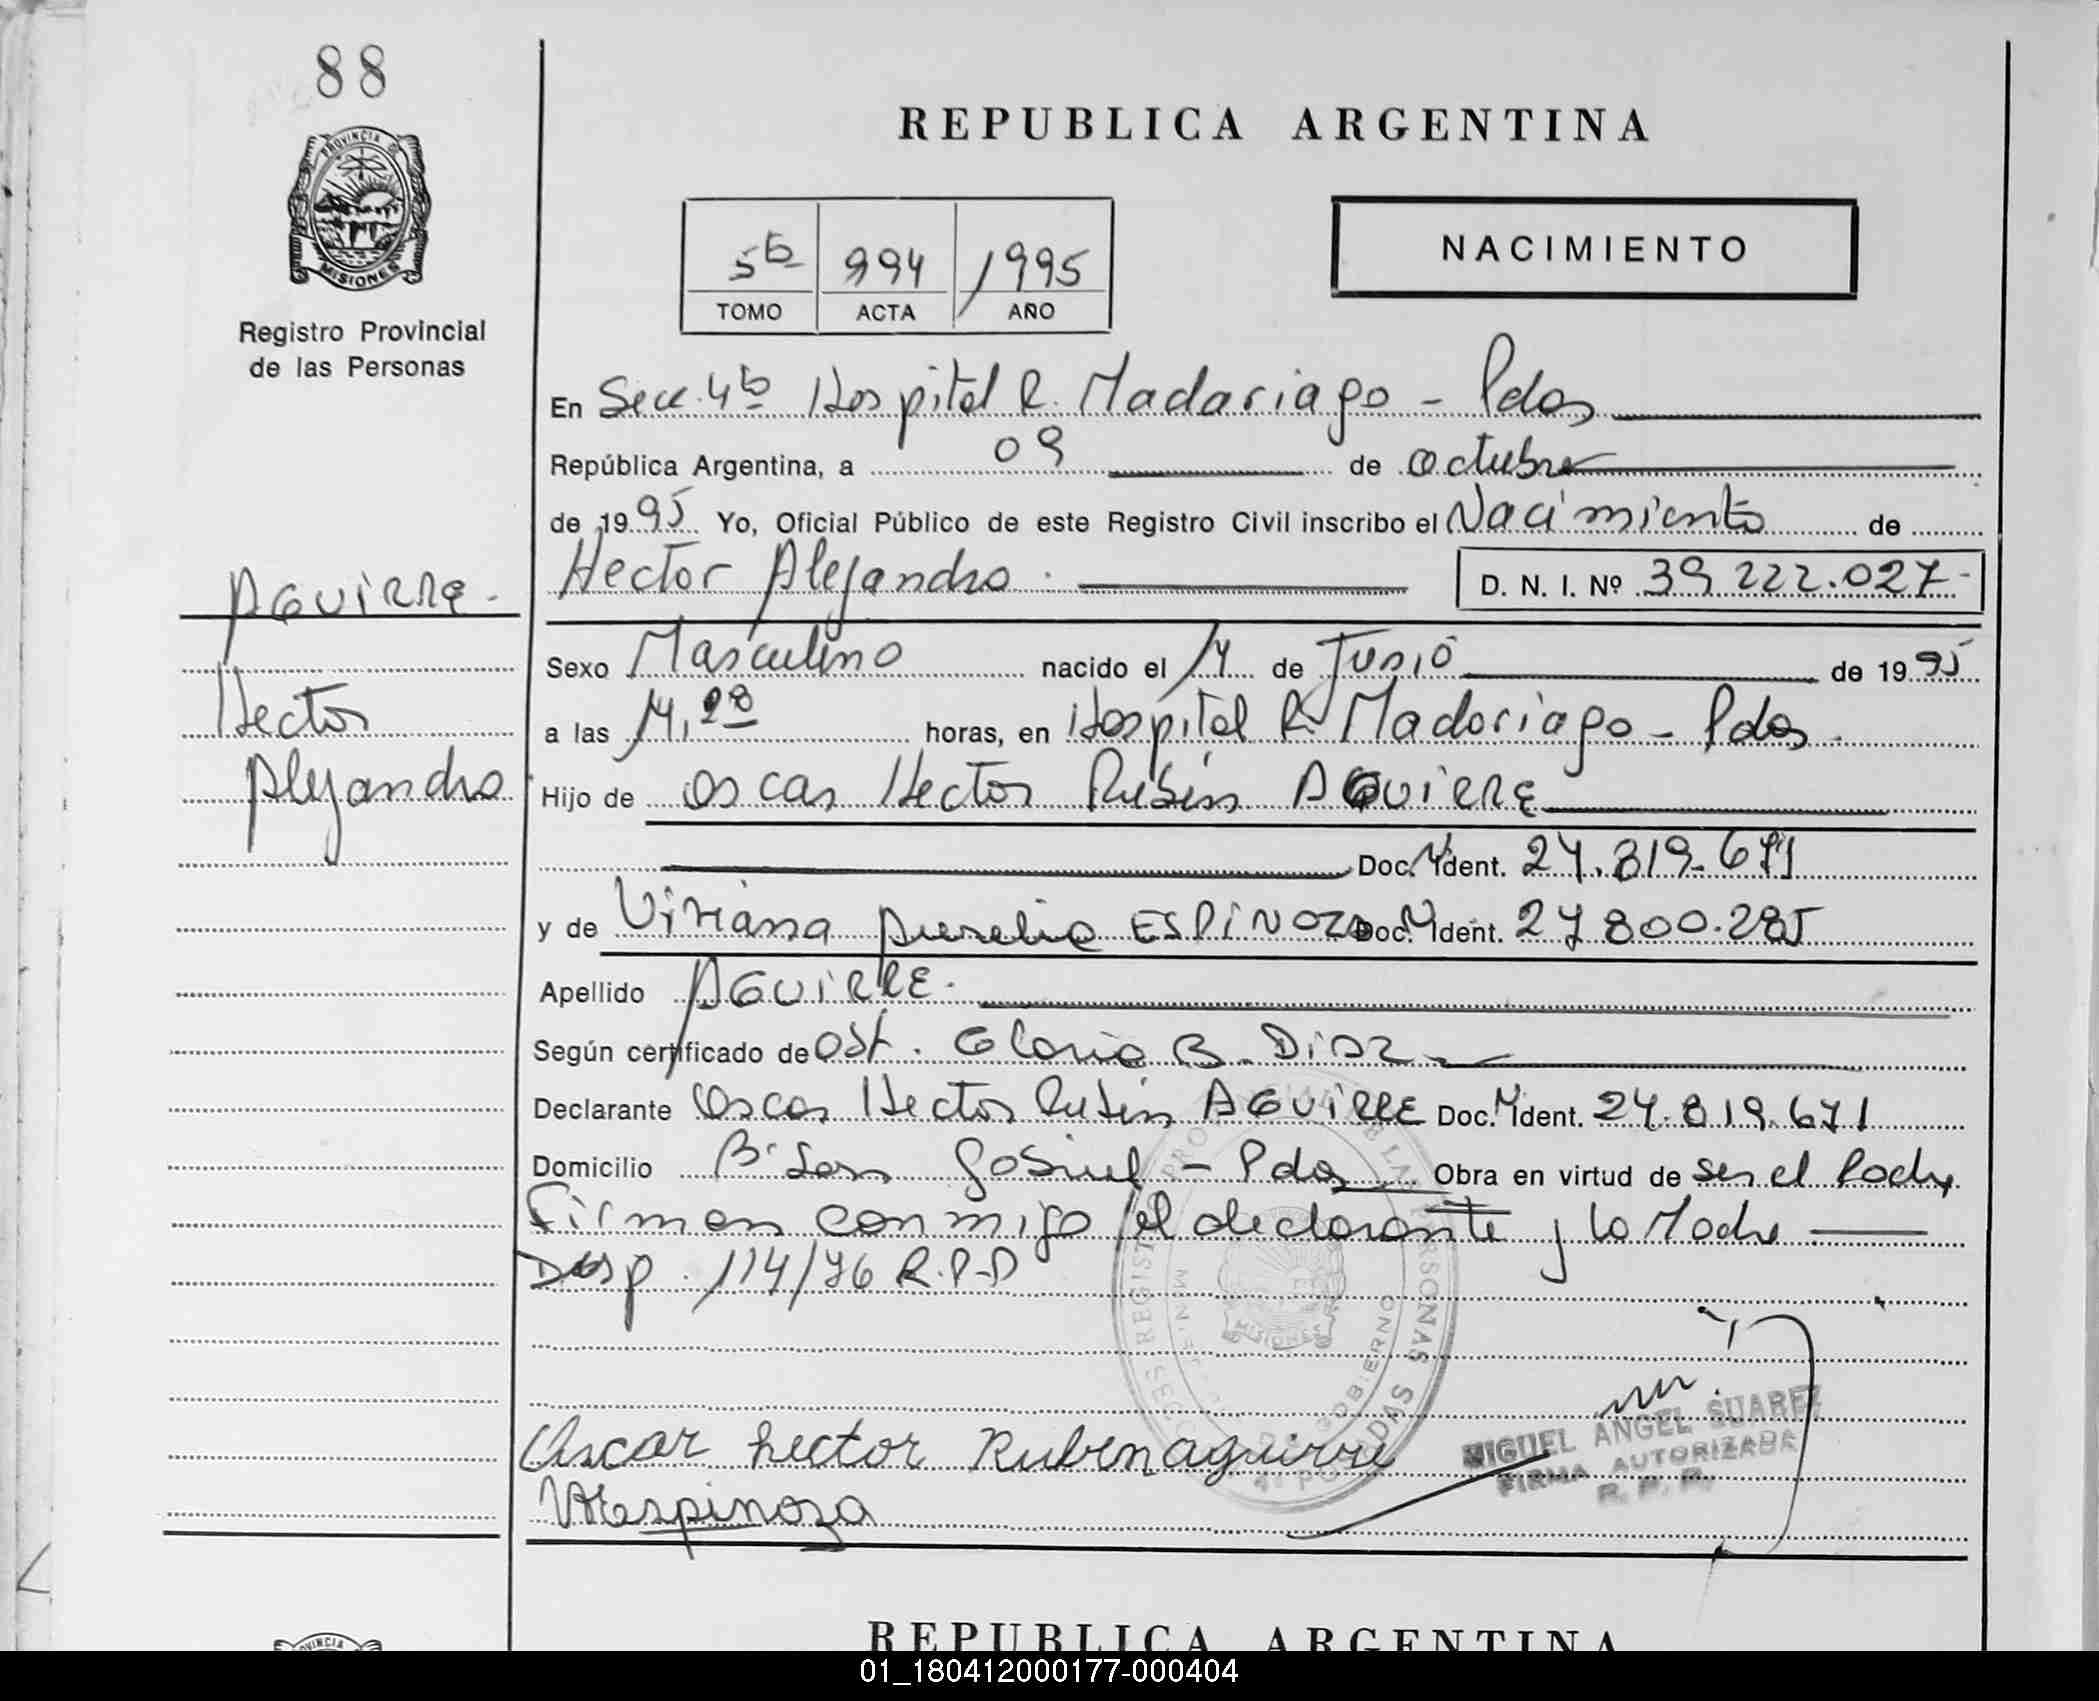 88
REPUBLICA ARGENTINA
PROVINCIA DE
MISIONES
Registro Provincial
de las Personas
NACIMIENTO
5to 994 1995
TOMO ACTA AÑO
En Secc. 4ta Hospital R. Madariaga - Pdas
República Argentina, a 09 de octubre
de 1995 Yo, Oficial Público de este Registro Civil inscribo el Nacimiento de
Hector Alejandro. D. N. I. Nº 39.222.027-
AGUIRRE-
Hector
Alejandro
Sexo Masculino nacido el de Junio de 1995
a las horas, en Hospital R. Madariaga - Pdas.
Hijo de Oscar Hector Rubén AGUIRRE
Doc. N Ident. 24.819.671
y de Viviana Aurelia ESPINOZA Doc. N Ident. 27.800.285
Apellido AGUIRRE.
Según certificado de Obst. Gloria B. Diaz
Declarante Oscar Hector Rubén AGUIRRE Doc. N Ident. 24.819.671
Domicilio Bº San Gabriel - Pdas Obra en virtud de ser el Padre
Firman conmigo el declarante y la Madre
Disp. 114/76 R.P.P
Oscar hector Ruben aguirre
VAEspinoza
MIGUEL ANGEL SUAREZ
FIRMA AUTORIZADA
R. P. P.
REPUBLICA ARGENTINA
01_180412000177-000404